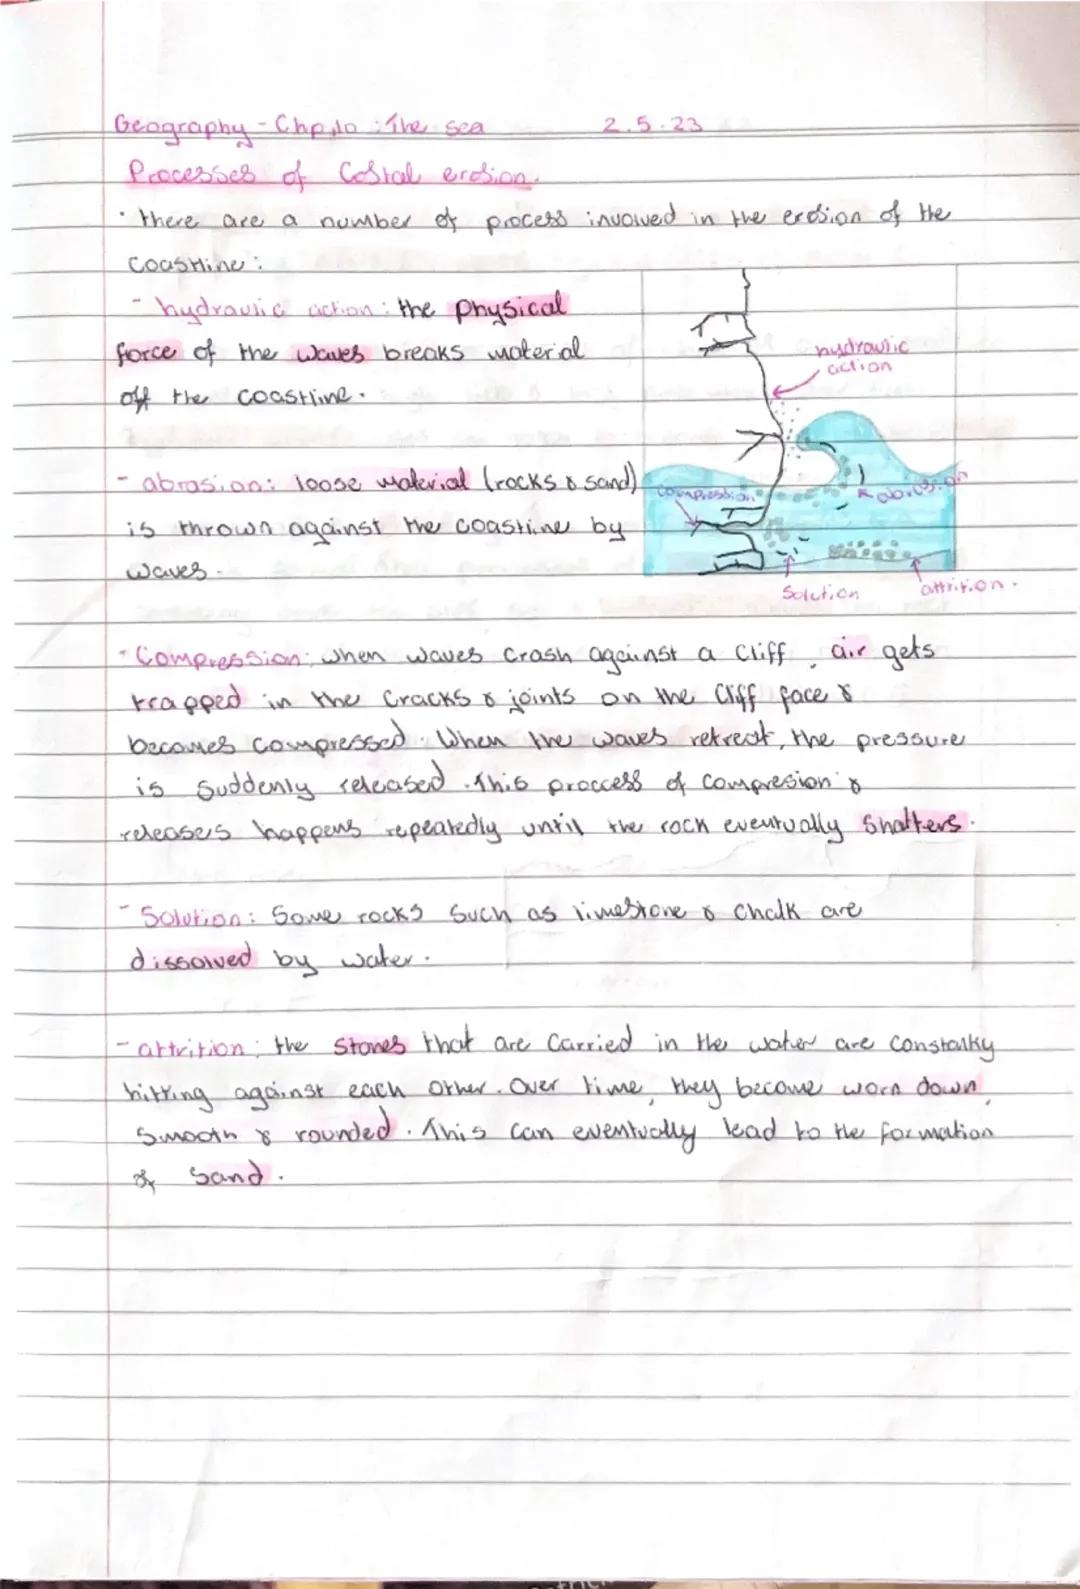 Geography - Chp,10 : The sea 2.5.23
Processes of Costal erosion.
· there are a number of process involved in the erosion of the
coastline :
- hydraulic action : the physical
force of the waves breaks material
off the coastline.
hydraulic
action
- abrasion: loose material (rocks & sand)
is thrown against the coastline by
waves.
compression
abrasion
Solution
attrition.
- Compression: when waves crash against a cliff, air gets
trapped in the cracks & joints on the cliff face &
becomes compressed. When the waves retreat, the pressure
is suddenly released. This proccess of compresion &
releases happens repeatedly until the rock eventually shatters.
- Solution: Some rocks such as limestone & chalk are
dissolved by water.
- attrition: the stones that are carried in the water are constantly
hitting against each other. Over time, they become worn down,
smooth & rounded. This can eventually lead to the formation
of sand.